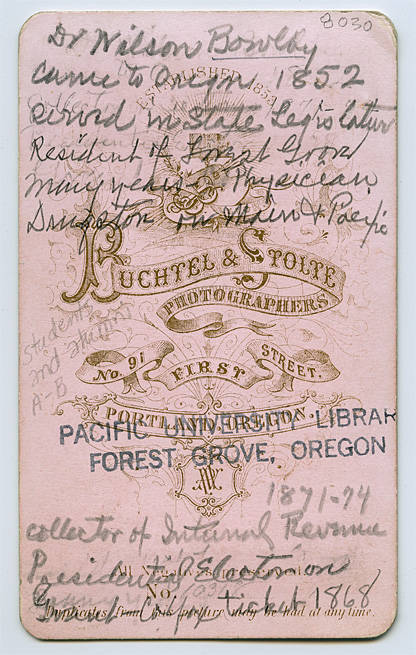 8030
Dr Wilson Bowlby
came to Oregon 1852
ESTABLISHED 1853
served in State Legislatur
Resident of Forest Grove
many years - Physician
Drugstore on Main & Pacific
BUCHTEL & STOLTE
PHOTOGRAPHERS
Students
and alumni
A-B
No. 91 FIRST STREET.
PORTLAND, OREGON.
PACIFIC UNIVERSITY LIBRAR
FOREST GROVE, OREGON
1871-74
collector of Internal Revenue
All Negatives preserved.
Presidential Election
No.
Grant ticket 1868
Duplicates from this picture may be had at any time.